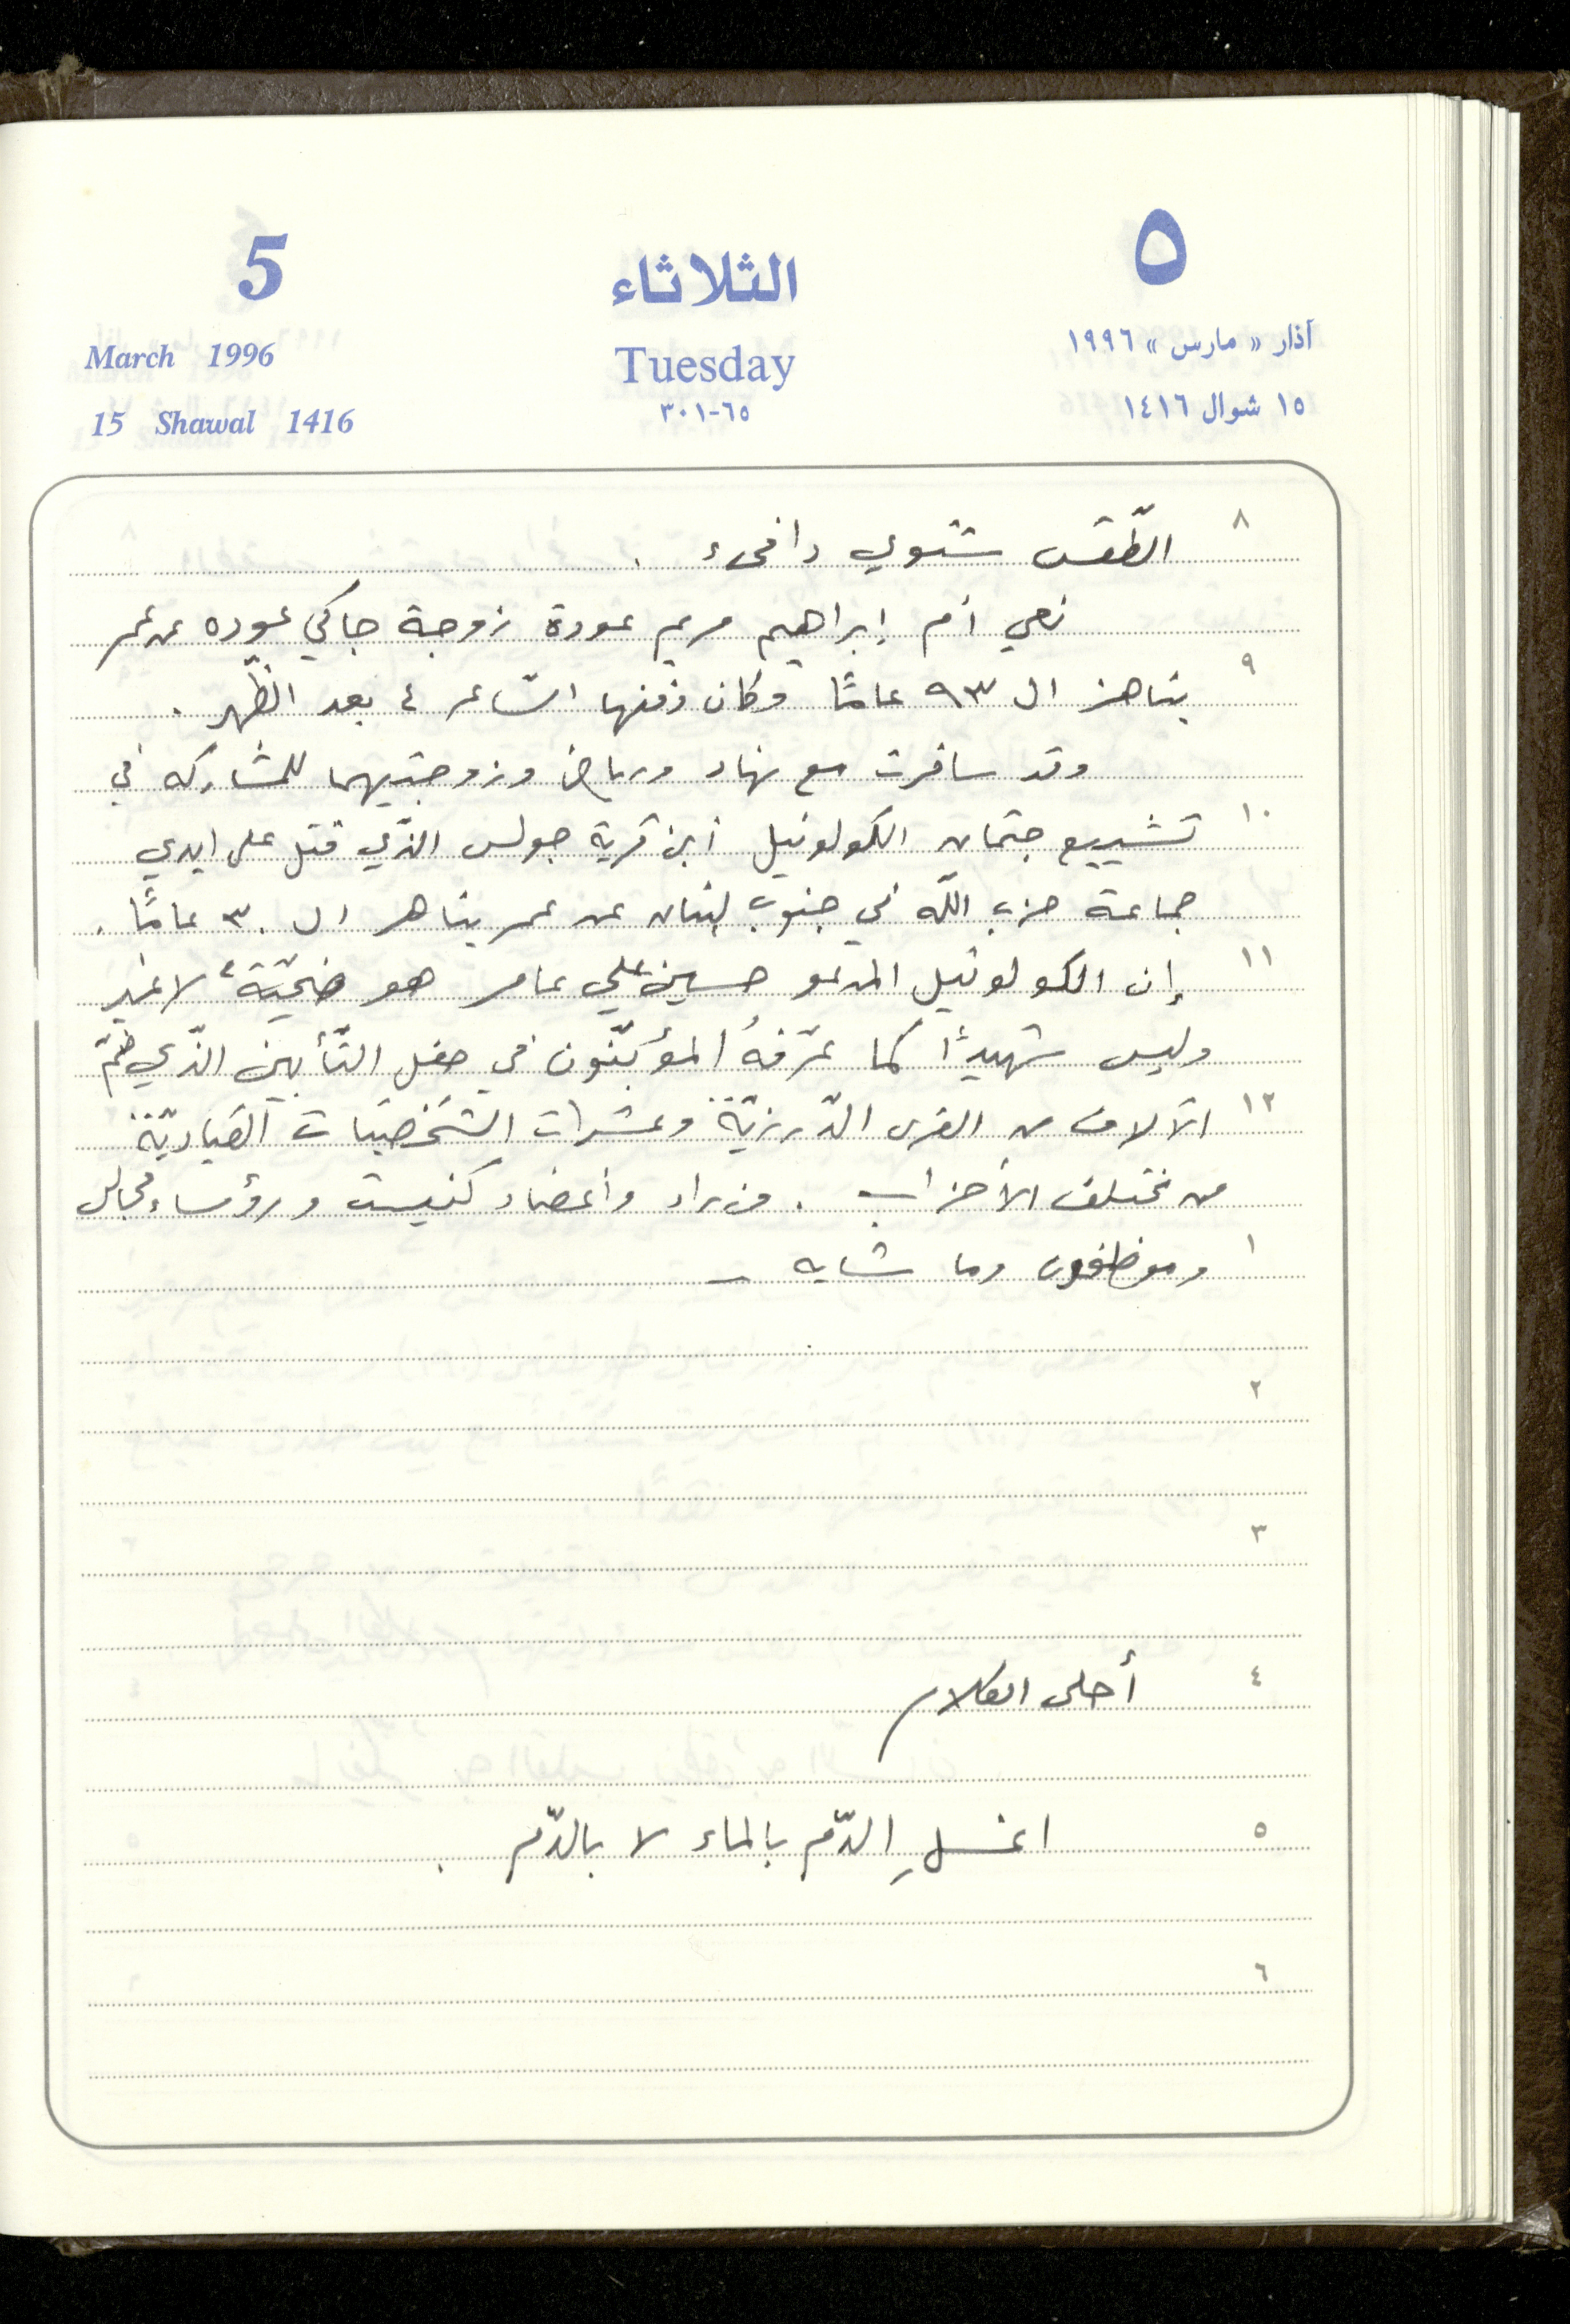 5
الثلاثاء
٥
March 1996
Tuesday
آذار « مارس » ١٩٩٦
15 Shawal 1416
٣٠١-٦٥
١٥ شوال ١٤١٦
٨
الطّقس شتوي دافىء .
نعي أم إبراهيم مريم عودة زوجة جاكي عوده عن عمر
٩
يناهز ال ٩٣ عامًا وكان دفنها السّاعه ٤ بعد الظّهر .
وقد سافرت مع نهاد ورياض وزوجتيهما للمشاركه في
١٠
تشييع جثمان الكولونيل ابن قرية جولس الذّي قتل على ايدي
جماعة حزب اللّه في جنوب لبنان عن عمر يناهر ال ٣٠ عامًا .
١١
إن الكولونيل المدعو حسين علي عامر هو ضحيّة لا غير
وليس شهيدًا كما عرّفهُ المؤبّنون في حفل التّأبين الذّي ضمّ
١٢
الآلاف من القرى الدّرزيّة وعشرات الشّخصيّات القياديّة
من مختلف الأحزاب . وزراء وأعضاء كنيست ورؤساء مجالس
١
وموظفون وما شابه _
٢
٣
٤
أحلى الكلام
٥
اغسلِ الدّم بالماء لا بالدّم .
٦